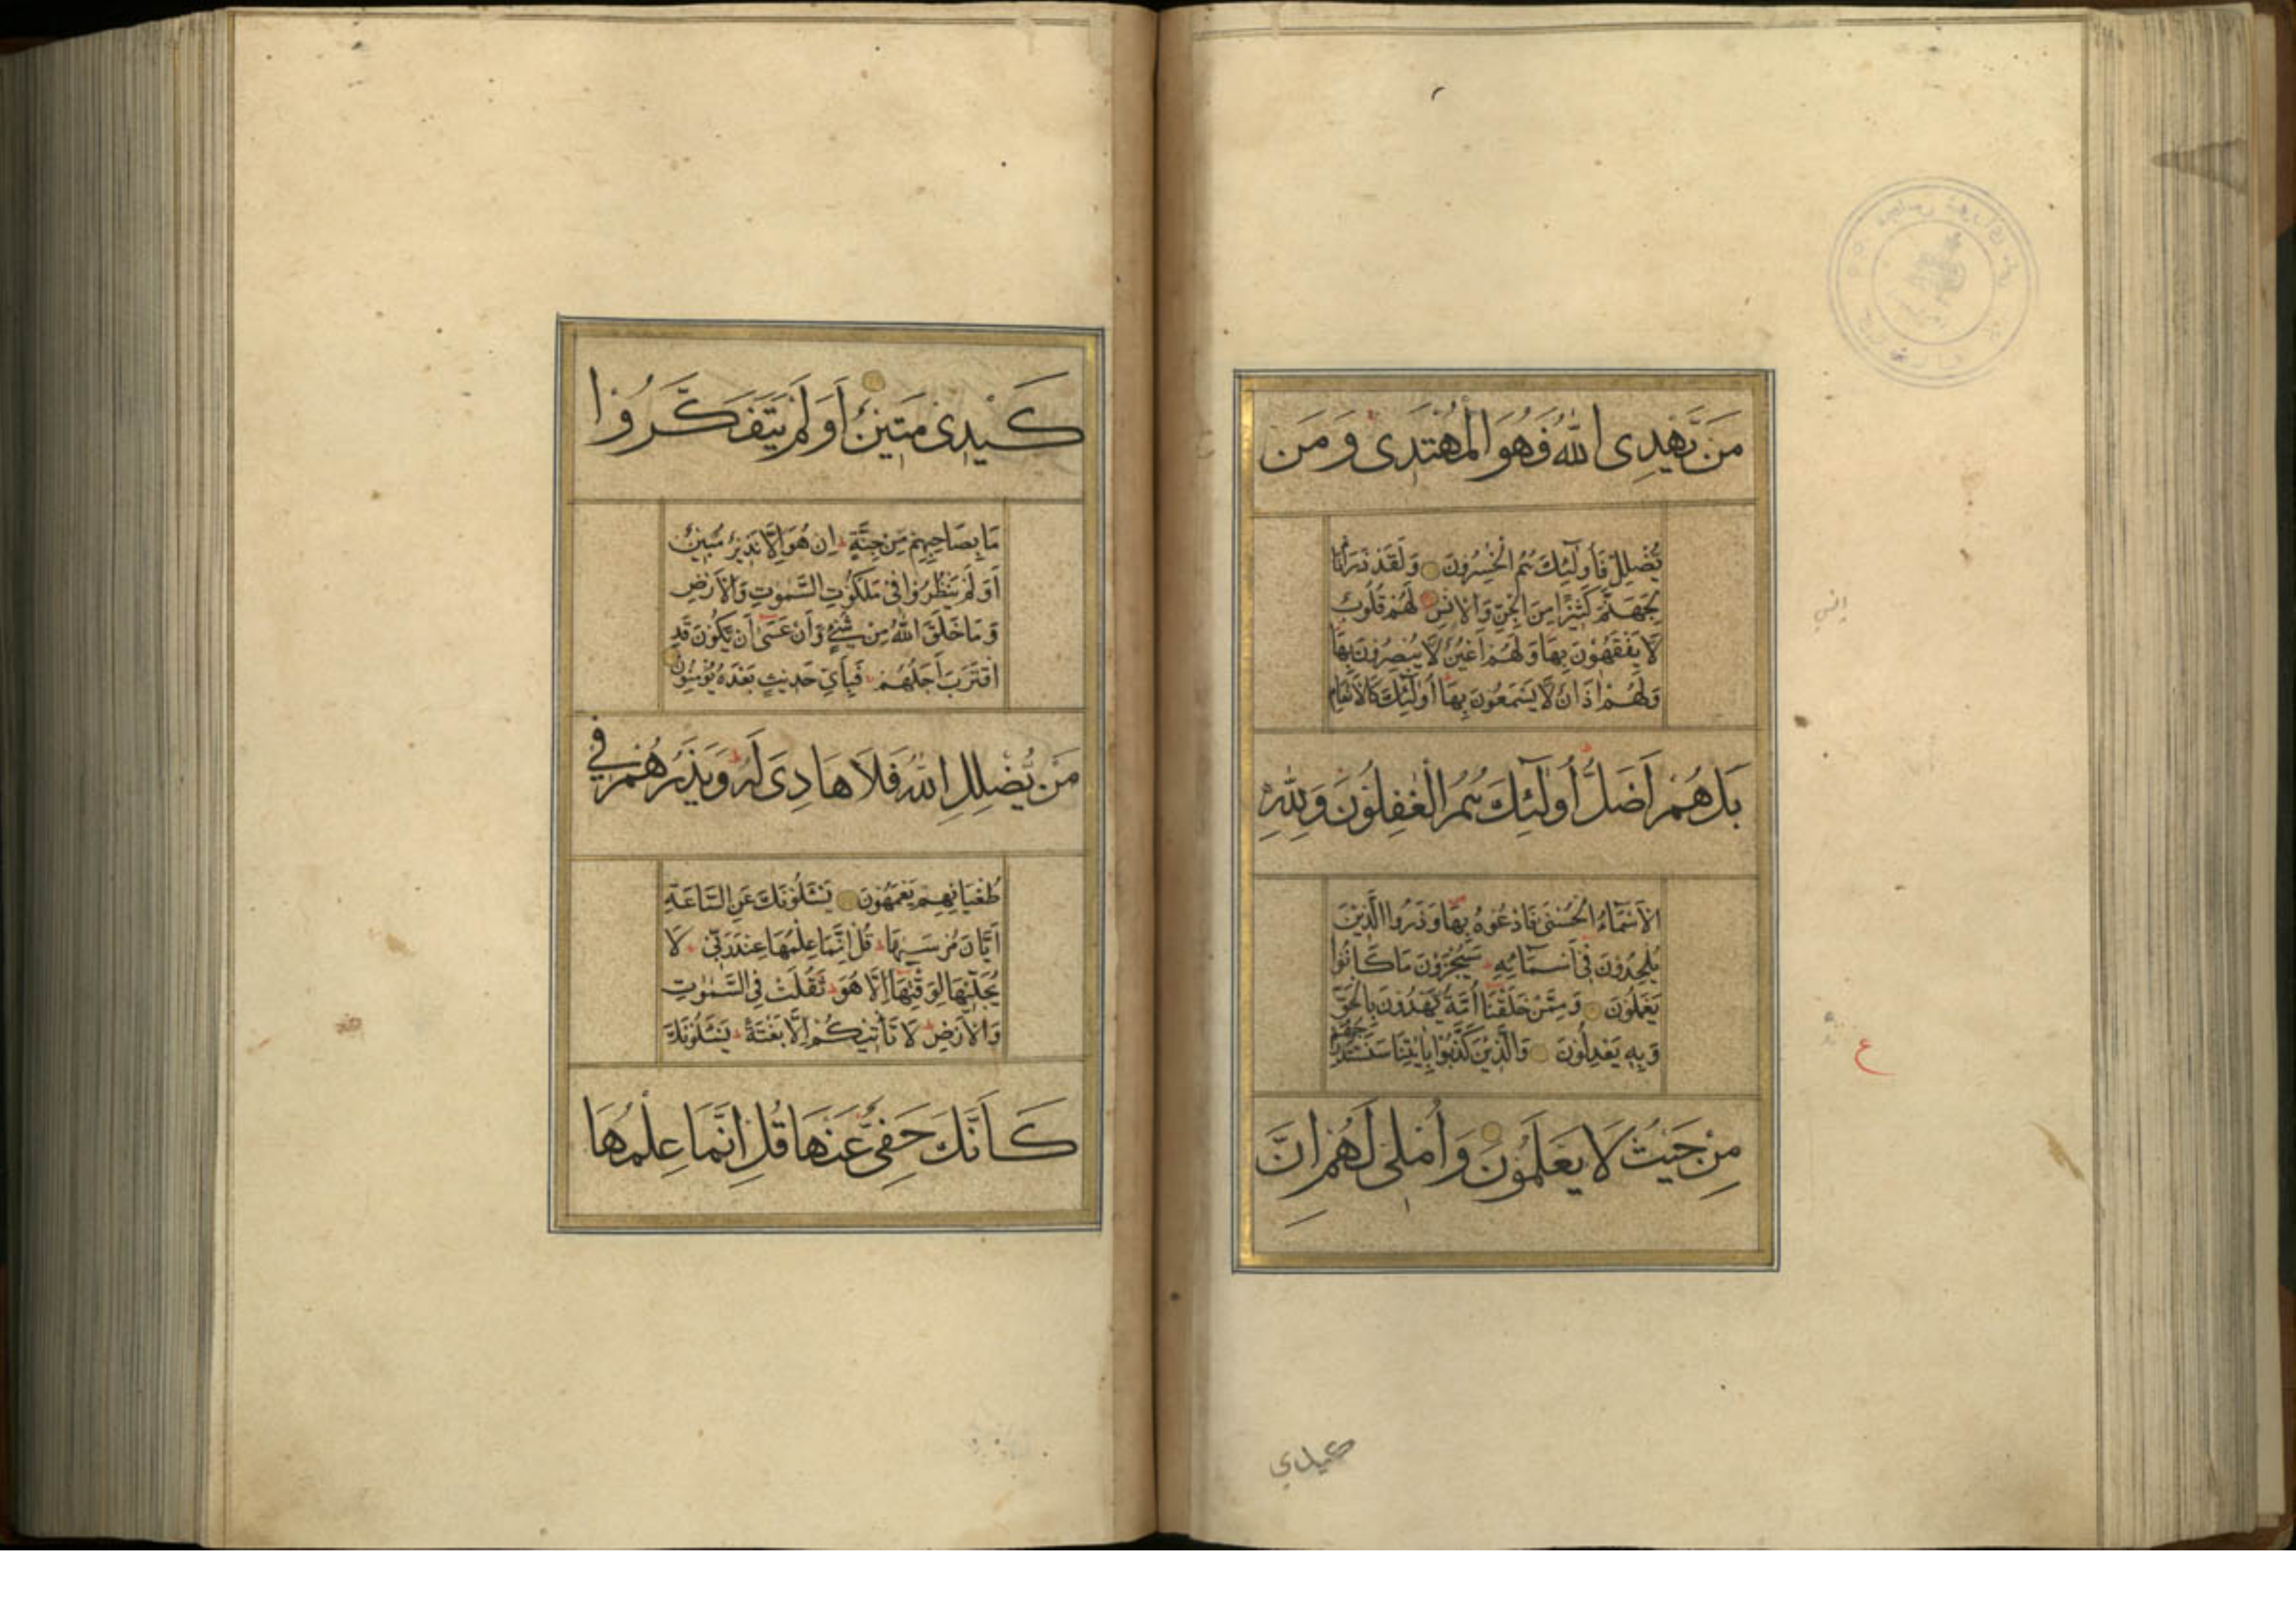 مَن يَّهْدِى اللّٰهُ فَهُوَ الْمُهْتَدِىْ وَمَن
يُّضْلِلْ فَأُولٰٓئِكَ هُمُ الْخٰسِرُوْنَ وَلَقَدْ ذَرَأْنَا
لِجَهَنَّمَ كَثِيْرًا مِنَ الْجِنِّ وَالْاِنْسِ لَهُمْ قُلُوْبٌ
لَا يَفْقَهُوْنَ بِهَا وَلَهُمْ اَعْيُنٌ لَا يُبْصِرُوْنَ بِهَا
وَلَهُمْ اٰذَانٌ لَا يَسْمَعُوْنَ بِهَا اُولٰٓئِكَ كَالْاَنْعَامِ
بَلْ هُمْ اَضَلُّ اُولٰٓئِكَ هُمُ الْغٰفِلُوْنَ وَلِلّٰهِ
الْاَسْمَآءُ الْحُسْنٰى فَادْعُوْهُ بِهَا وَذَرُوا الَّذِيْنَ
يُلْحِدُوْنَ فِىْ اَسْمَآئِهِ سَيُجْزَوْنَ مَا كَانُوْا
يَعْمَلُوْنَ وَمِمَّنْ خَلَقْنَا اُمَّةٌ يَّهْدُوْنَ بِالْحَقِّ
وَبِهِ يَعْدِلُوْنَ وَالَّذِيْنَ كَذَّبُوْا بِاٰيٰتِنَا سَنَسْتَدْرِجُهُمْ
مِنْ حَيْثُ لَا يَعْلَمُوْنَ وَاُمْلِىْ لَهُمْ اِنَّ
كيدي
ع
كَيْدِىْ مَتِيْنٌ اَوَلَمْ يَتَفَكَّرُوْا
مَا بِصَاحِبِهِمْ مِّنْ جِنَّةٍ اِنْ هُوَ اِلَّا نَذِيْرٌ مُّبِيْنٌ
اَوَلَمْ يَنْظُرُوْا فِىْ مَلَكُوْتِ السَّمٰوٰتِ وَالْاَرْضِ
وَمَا خَلَقَ اللّٰهُ مِنْ شَىْءٍ وَّاَنْ عَسٰٓى اَنْ يَّكُوْنَ قَدِ
اقْتَرَبَ اَجَلُهُمْ فَبِاَىِّ حَدِيْثٍ بَعْدَهُ يُؤْمِنُوْنَ
مَنْ يُّضْلِلِ اللّٰهُ فَلَا هَادِىَ لَهُ وَيَذَرُهُمْ فِي
طُغْيَانِهِمْ يَعْمَهُوْنَ يَسْـَٔلُوْنَكَ عَنِ السَّاعَةِ
اَيَّانَ مُرْسٰيهَا قُلْ اِنَّمَا عِلْمُهَا عِنْدَ رَبِّىْ لَا
يُجَلِّيْهَا لِوَقْتِهَا اِلَّا هُوَ ثَقُلَتْ فِى السَّمٰوٰتِ
وَالْاَرْضِ لَا تَأْتِيْكُمْ اِلَّا بَغْتَةً يَسْـَٔلُوْنَكَ
كَاَنَّكَ حَفِىٌّ عَنْهَا قُلْ اِنَّمَا عِلْمُهَا